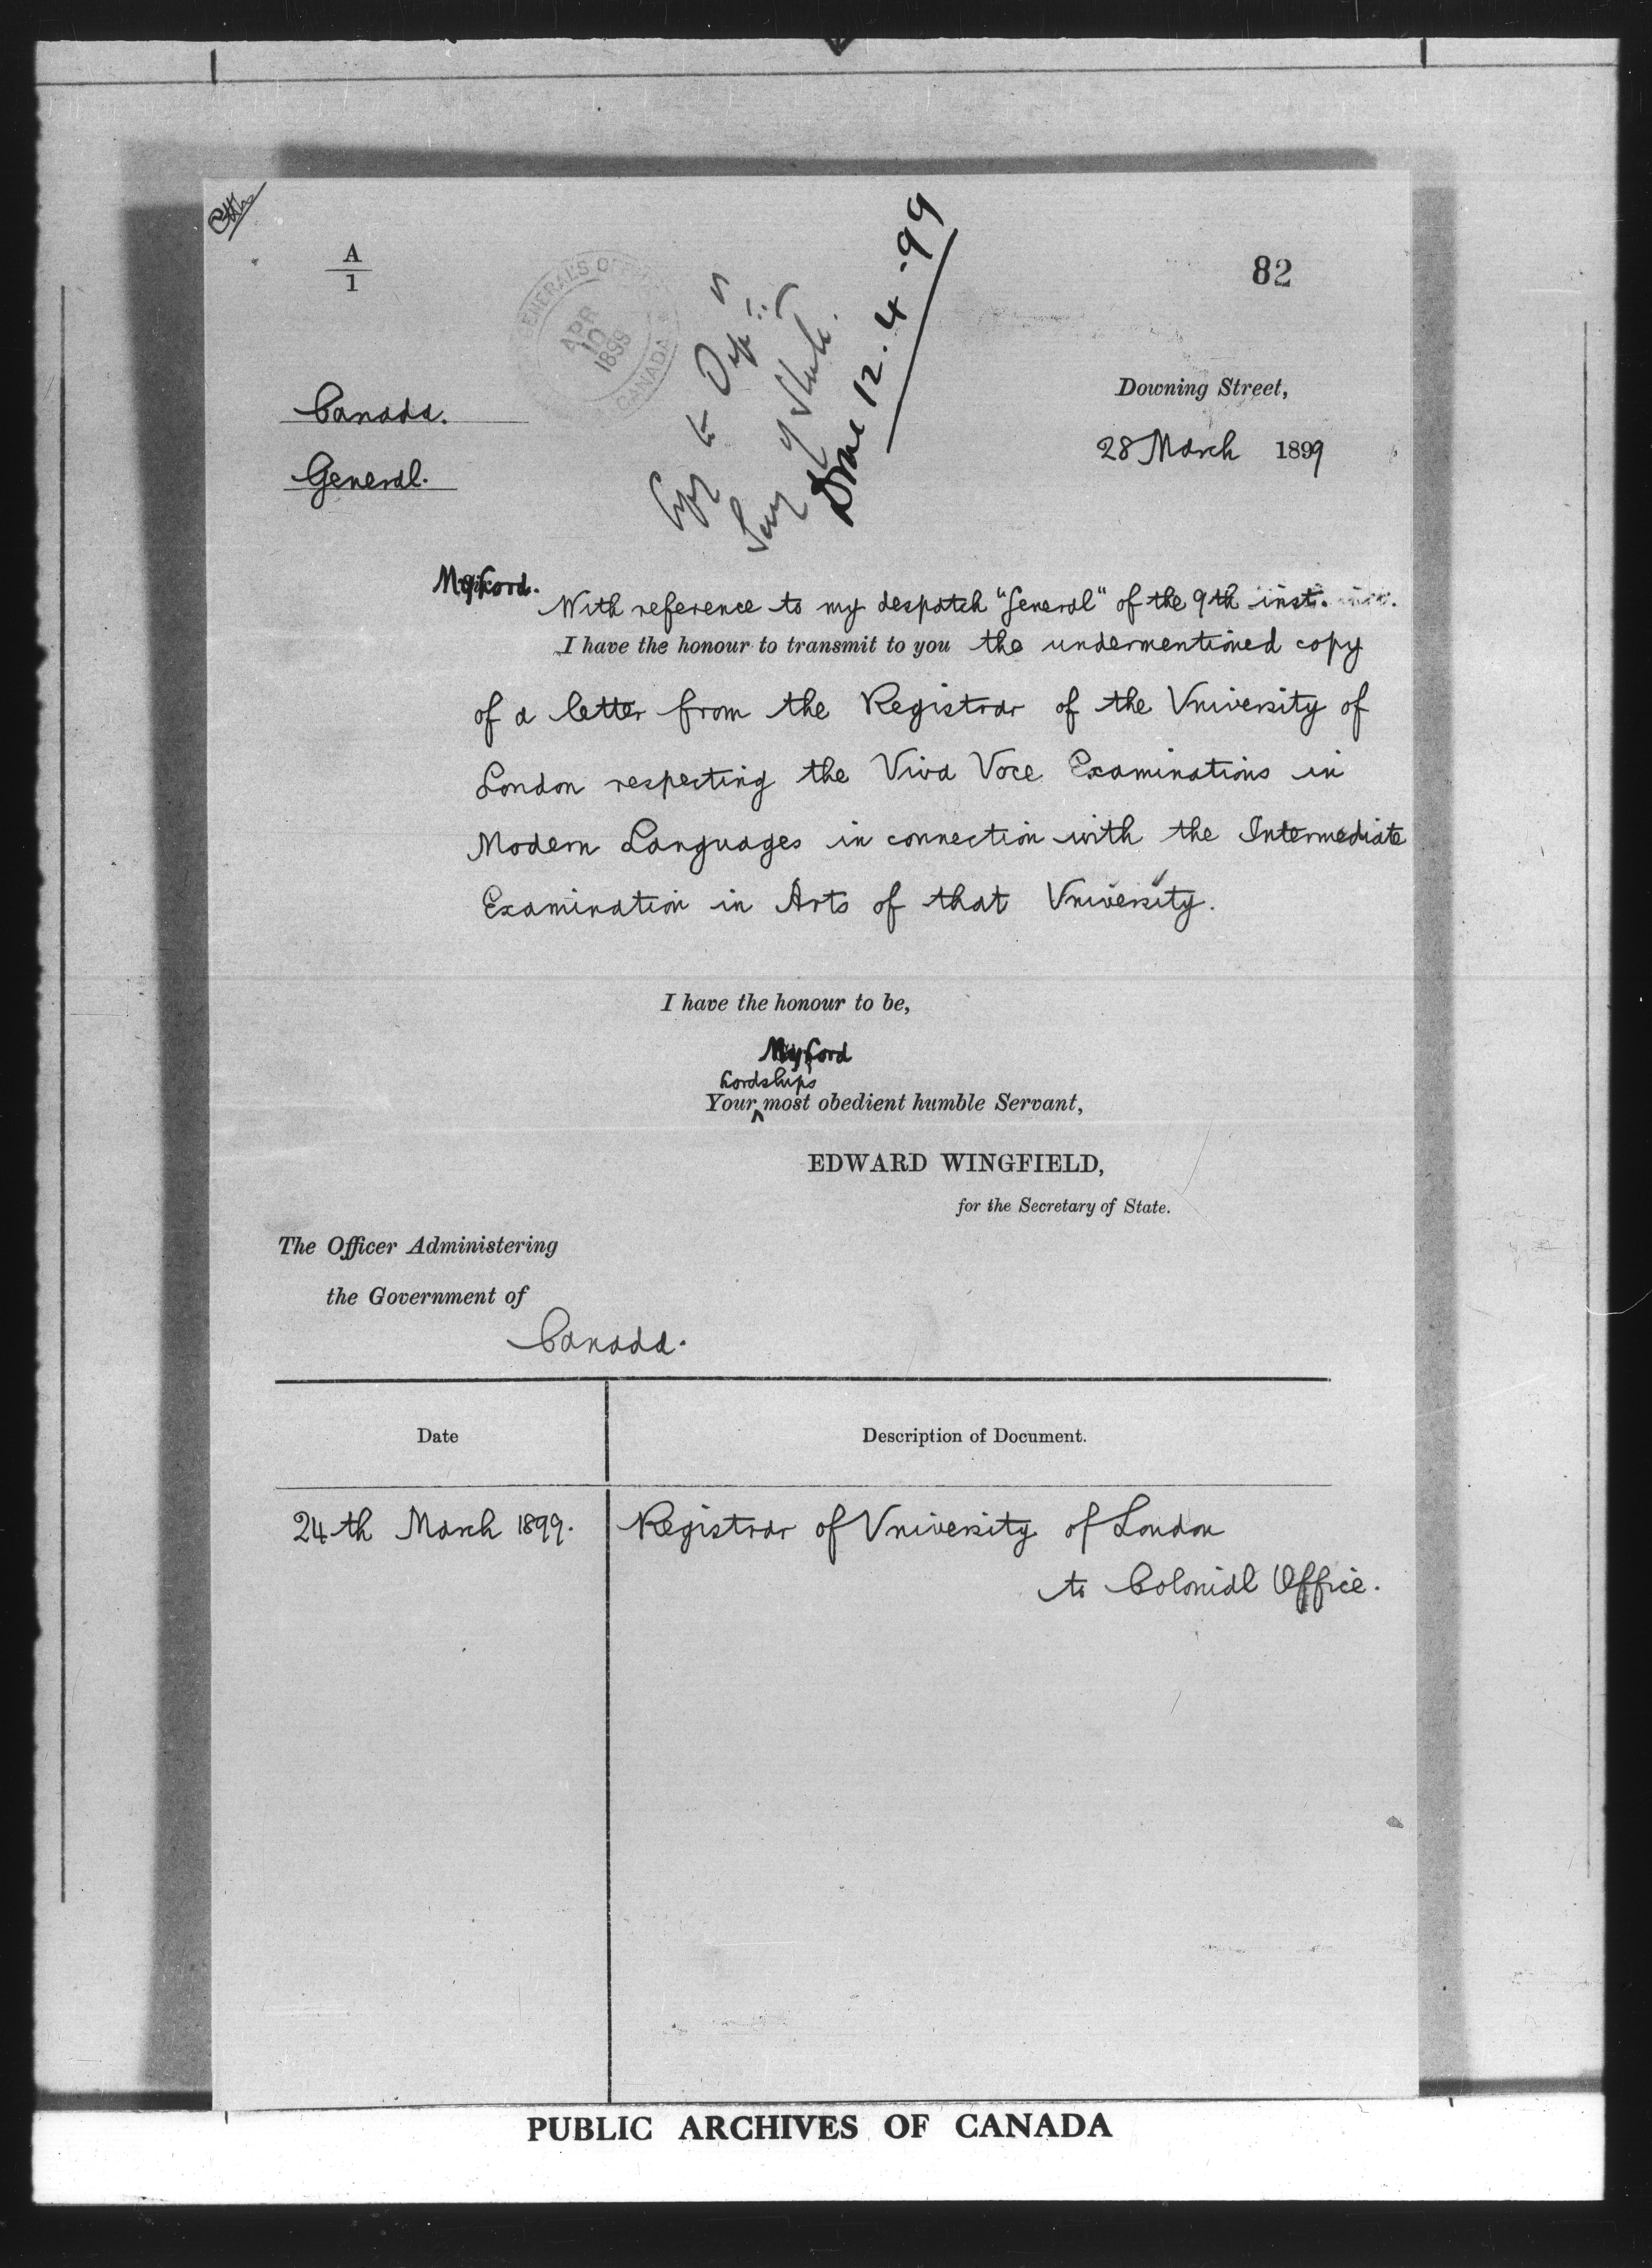 A
1
82
GENERAL'S OFFICE
APR
10
1899
CANADA
Copy to Dep
Secy of State.
Done 12.4.99
Canada.
General.
Downing Street,
28 March 1899
My Lord.
With reference to my despatch "General" of the 9th inst.
I have the honour to transmit to you the undermentioned copy
of a letter from the Registrar of the University of
London respecting the Viva Voce Examinations in
Modern Languages in connection with the Intermediate
Examination in Arts of that University.
I have the honour to be,
My Lord
Lordships
Your most obedient humble Servant,
EDWARD WINGFIELD,
for the Secretary of State.
The Officer Administering
the Government of
Canada.
Date
Description of Document.
24th March 1899.
Registrar of University of London
to Colonial Office.
PUBLIC ARCHIVES OF CANADA